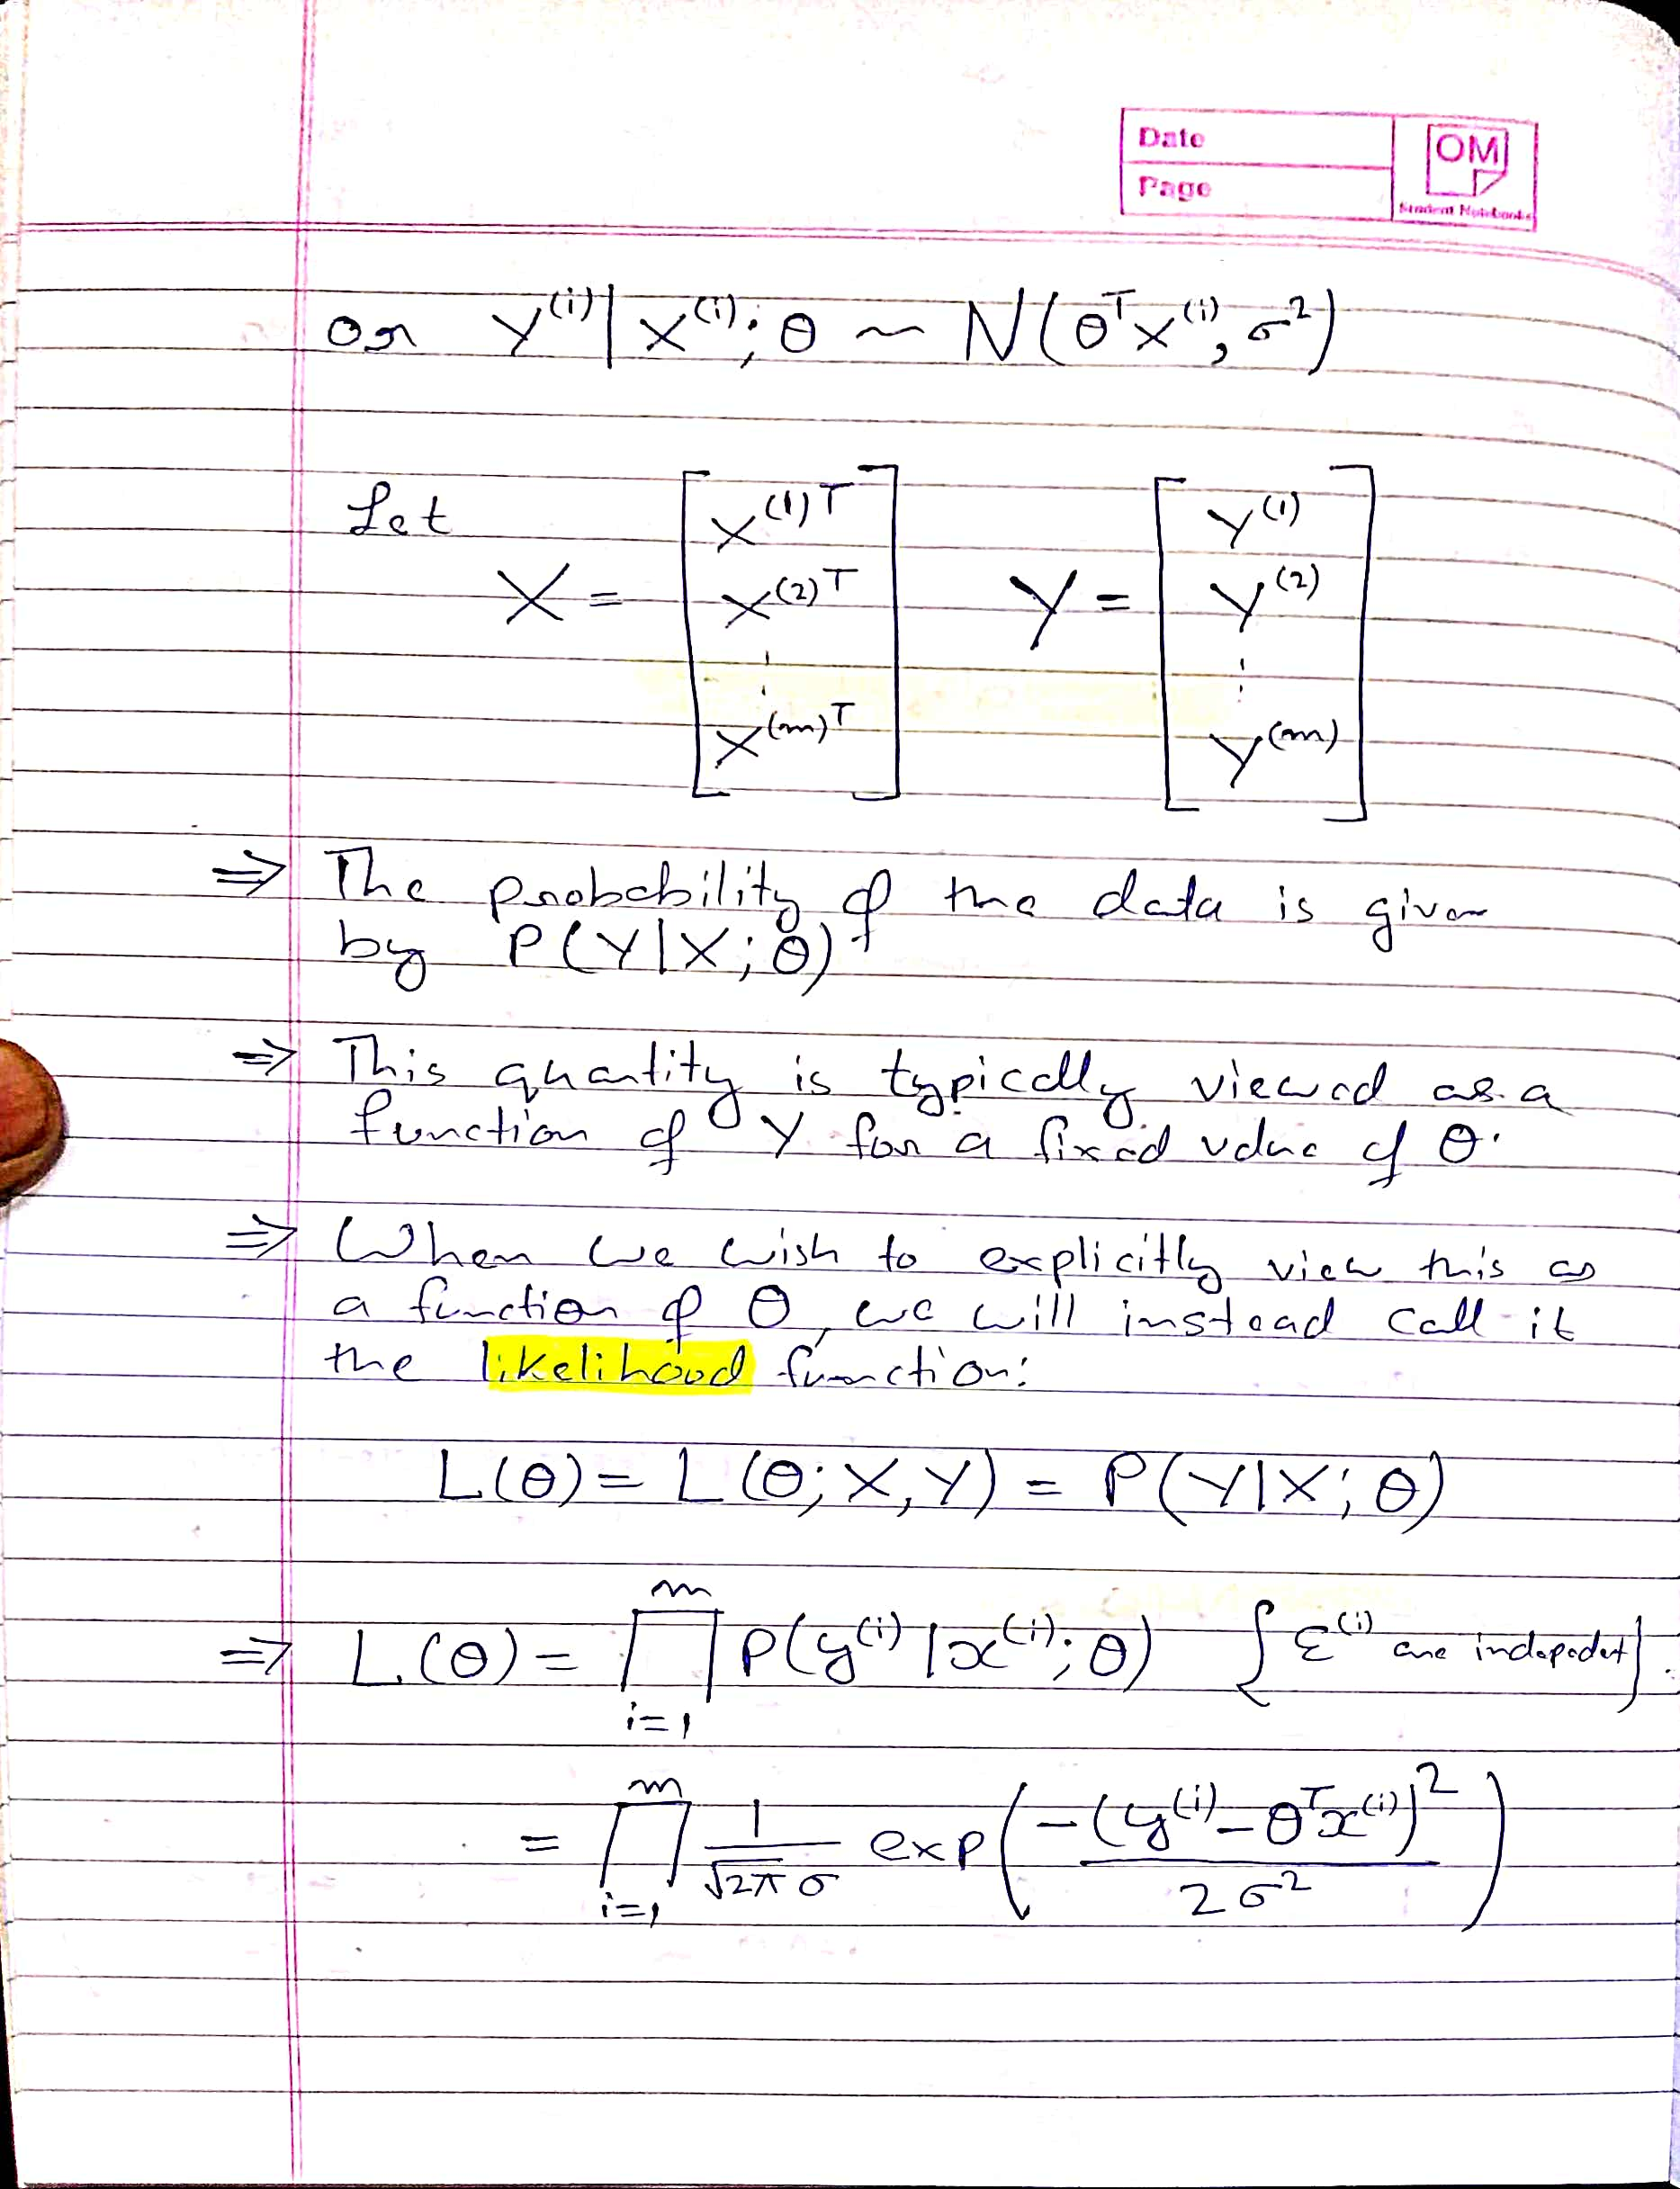 Date
Page
OM
Student Notebooks
or y⁽ⁱ⁾ | x⁽ⁱ⁾; θ ~ N(θᵀx⁽ⁱ⁾, σ²)
Let
X = [ x⁽¹⁾ᵀ x⁽²⁾ᵀ ⋮ x⁽ᵐ⁾ᵀ ] Y = [ y⁽¹⁾ y⁽²⁾ ⋮ y⁽ᵐ⁾ ]
⇒ The probability of the data is given
by P(Y|X; θ)
⇒ This quantity is typically viewed as a
function of Y for a fixed value of θ.
⇒ When we wish to explicitly view this as
a function of θ, we will instead call it
the likelihood function:
L(θ) = L(θ; X, Y) = P(Y|X; θ)
⇒ L(θ) = ∏ᵢ₌₁ᵐ P(y⁽ⁱ⁾ | x⁽ⁱ⁾; θ) { ε⁽ⁱ⁾ are indepedent}.
= ∏ᵢ₌₁ᵐ 1/(√2π σ) exp( -(y⁽ⁱ⁾ - θᵀx⁽ⁱ⁾)² / 2σ² )